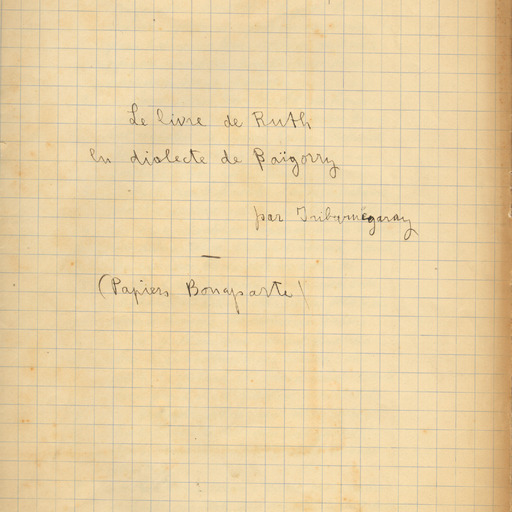 Le livre de Ruth
en dialecte de Baïgorry
par Iribarnégaray
(Papiers Bonaparte)